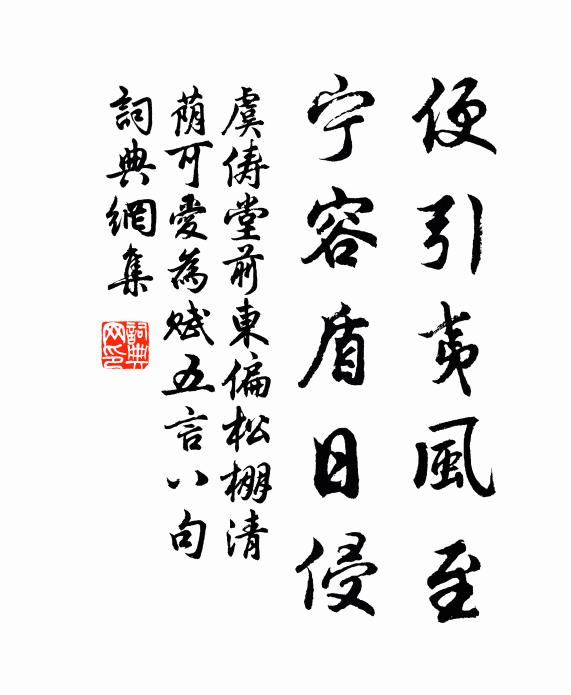 便引夷風至
宁容盾日侵
虞俦堂前東偏松棚清
荫可愛為赋五言八句
詞典網集
詞典网印